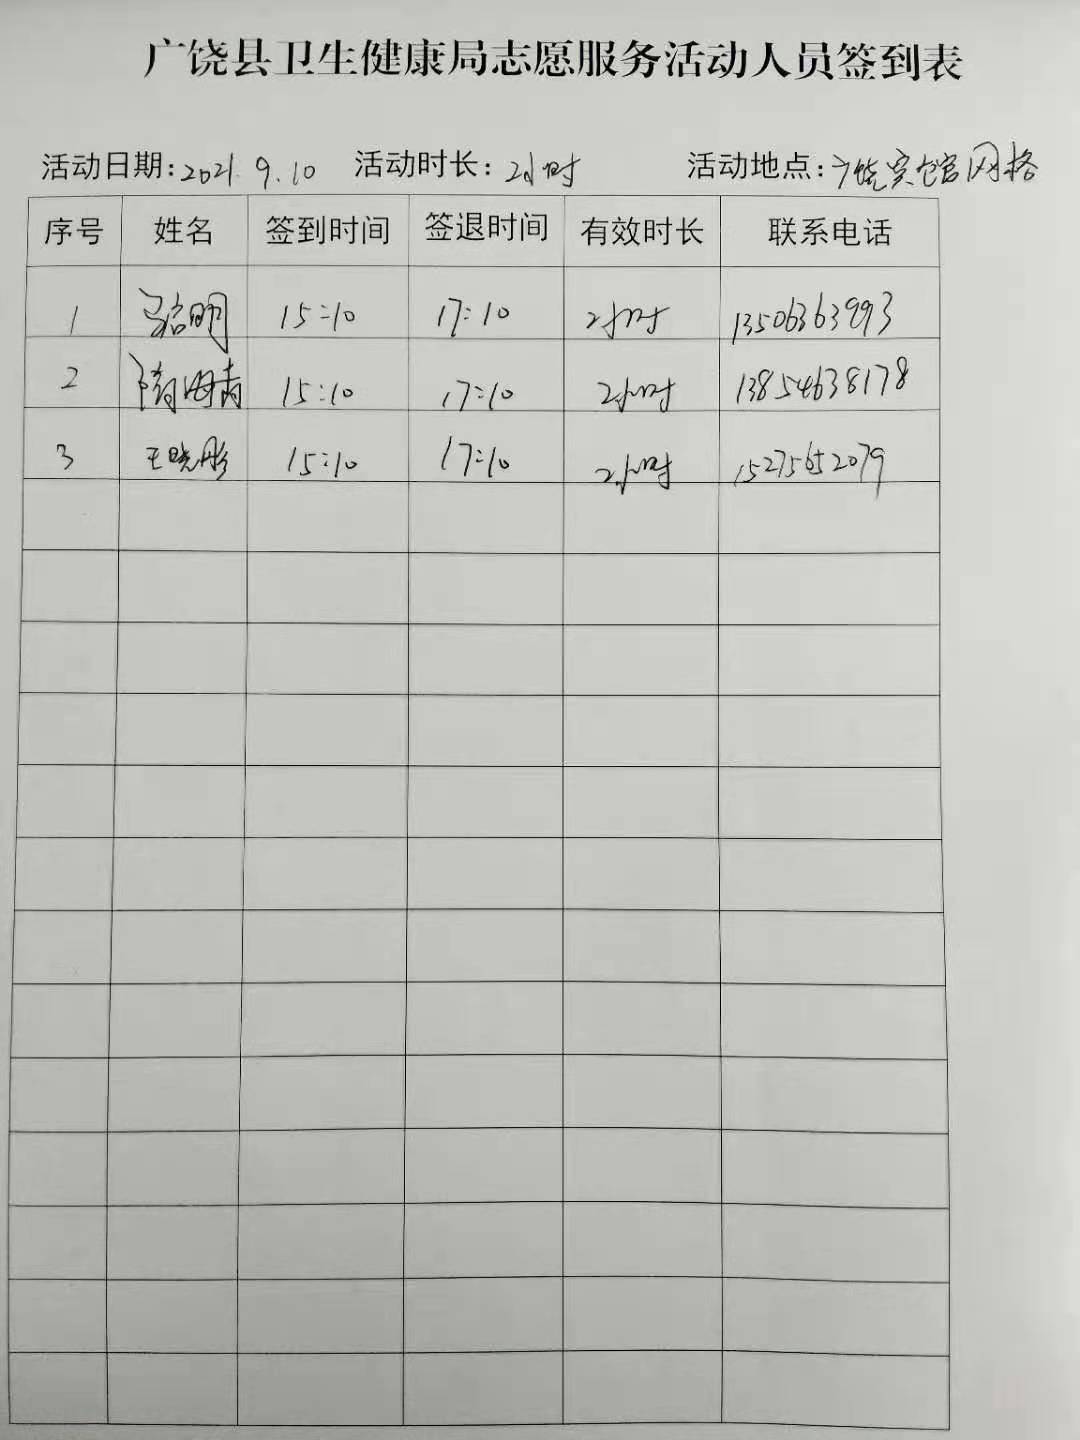 广饶县卫生健康局志愿服务活动人员签到表
活动日期:2021.9.10 活动时长:2小时 活动地点:广饶宾馆网格
序号 姓名 签到时间 签退时间 有效时长 联系电话
1 15:10 17:10 2小时 13506363993
2 隋海青 15:10 17:10 2小时 13854638178
3 王晓彤 15:10 17:10 2小时 15275652079